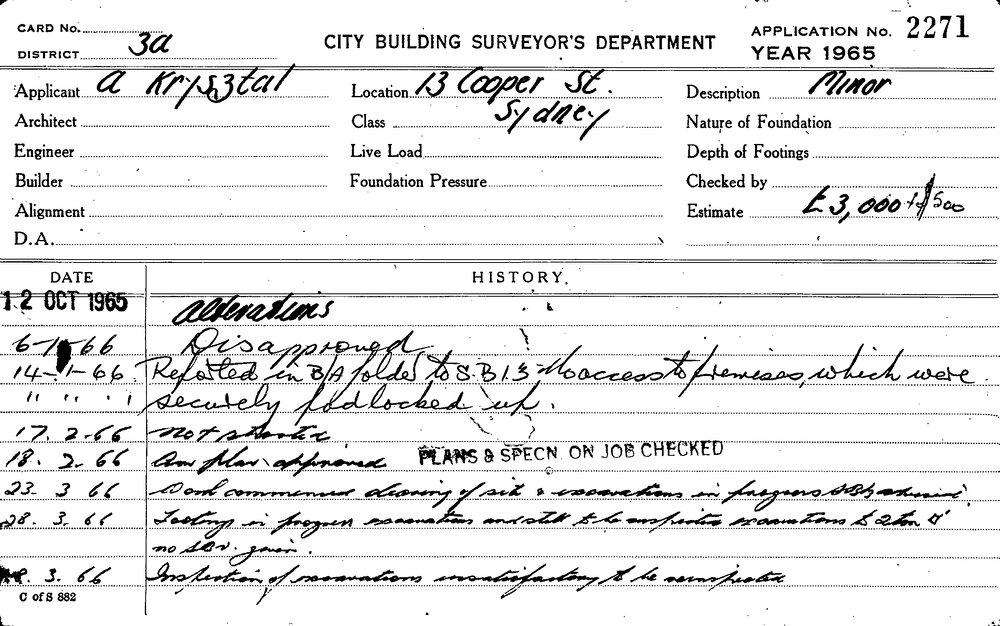 CARD No.
DISTRICT 3a
CITY BUILDING SURVEYOR'S DEPARTMENT
APPLICATION No. 2271
YEAR 1965
Applicant A Krysztal
Location 13 Cooper St.
Sydney
Description Minor
Architect
Class
Nature of Foundation
Engineer
Live Load
Depth of Footings
Builder
Foundation Pressure
Checked by
Alignment
Estimate £3,000 + £500
D.A.
DATE
HISTORY.
12 OCT 1965 alterations
6-1-66 Disapproved
14-1-66 Reported in BA folder to S.B.I.3 No access to premises, which were
" " " securely padlocked up.
17. 2-66 Not started
18. 2. 66 Am plan approved PLANS & SPECN. ON JOB CHECKED
23. 3 66 Work commenced clearing of site & excavations in progress
28. 3. 66 Footings in progress excavations and still to be inspected excavations to
no given.
3. 66 Inspection of excavations unsatisfactory to be reinspected
C of S 882